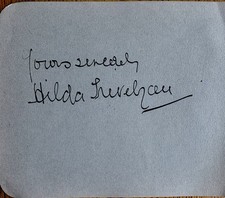 Yours sincerely
Hilda Trevelyan